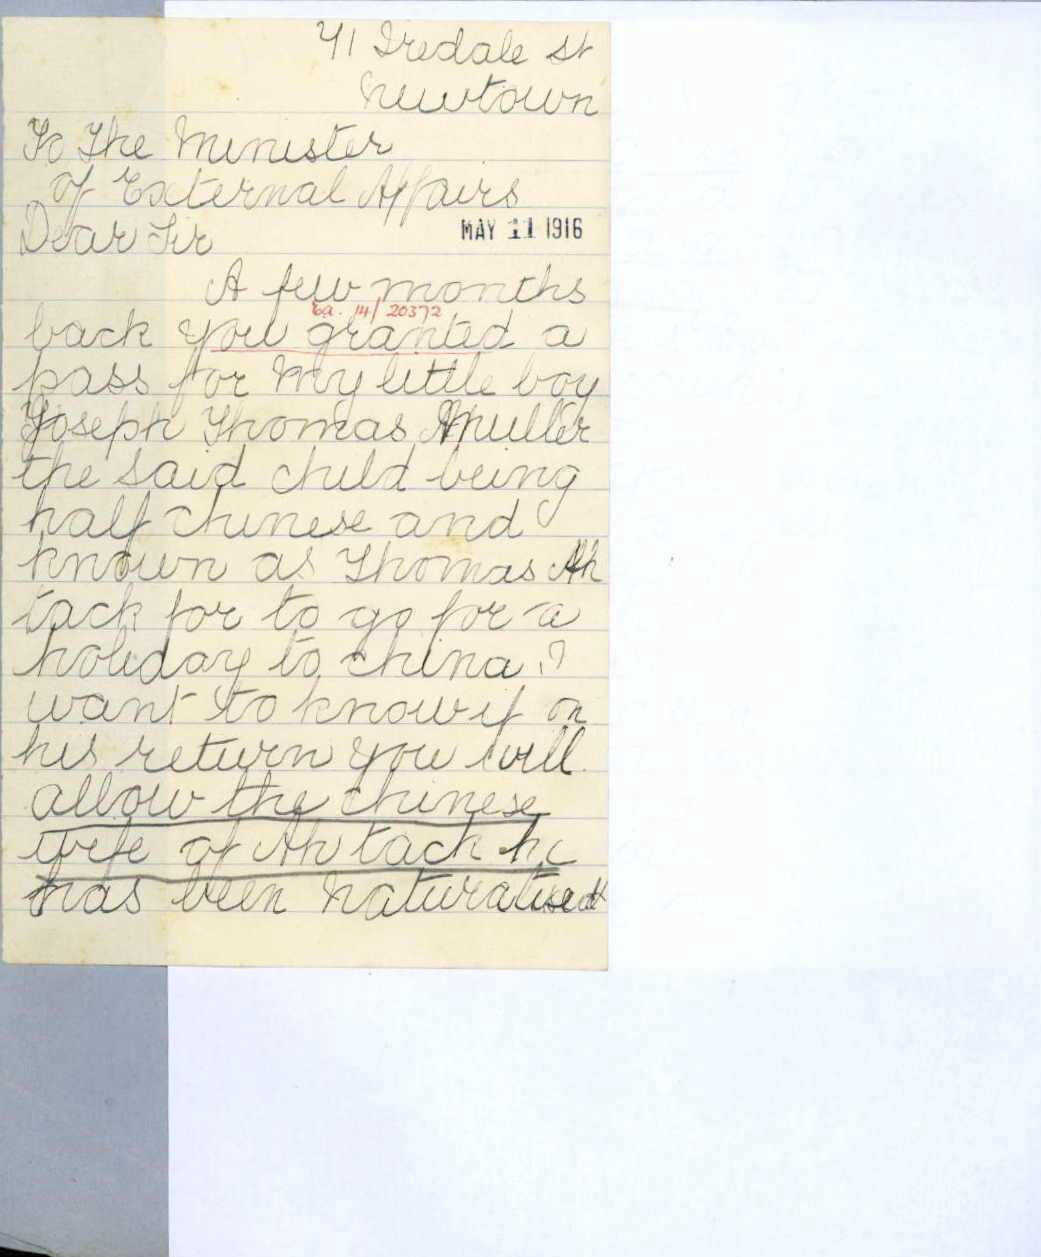 41 Iredale St
Newtown
To The Minister
of External Affairs
Dear Sir
MAY 11 1916
A few months
Ea. 14/20372
back you granted a
pass for My little boy
Joseph Thomas Muller
the said child being
half chinese and
known as Thomas Ah
tack for to go for a
holiday to china. I
want to know if on
his return you will
allow the chinese
wife of Ah tack he
has been naturalised